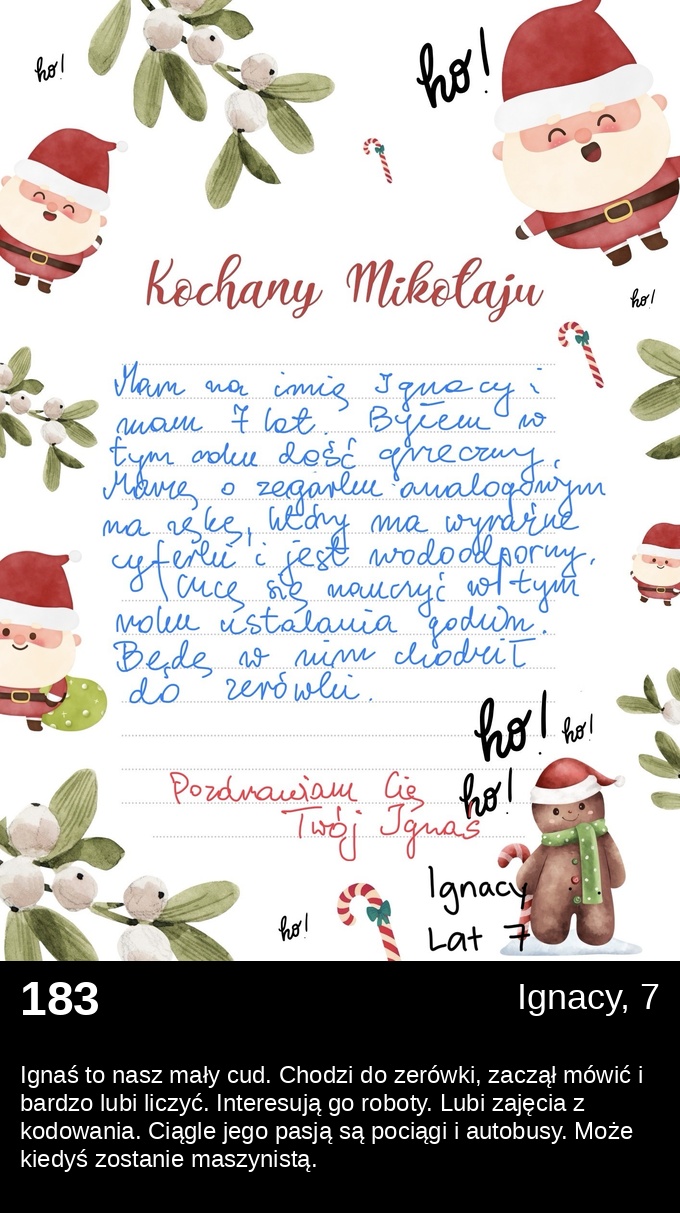 ho!
ho!
Kochany Mikołaju
ho!
Mam na imię Ignacy i
mam 7 lat. Byłem w
tym roku dość grzeczny.
Marzę o zegarku analogowym
na rękę, który ma wyraźne
cyferki i jest wodoodporny.
Chcę się nauczyć w tym
roku ustalania godzin.
Będę w nim chodził
do zerówki.
ho!
ho!
ho!
Pozdrawiam Cię
Twój Ignaś
Ignacy
Lat 7
ho!
183
Ignacy, 7
Ignaś to nasz mały cud. Chodzi do zerówki, zaczął mówić i
bardzo lubi liczyć. Interesują go roboty. Lubi zajęcia z
kodowania. Ciągle jego pasją są pociągi i autobusy. Może
kiedyś zostanie maszynistą.